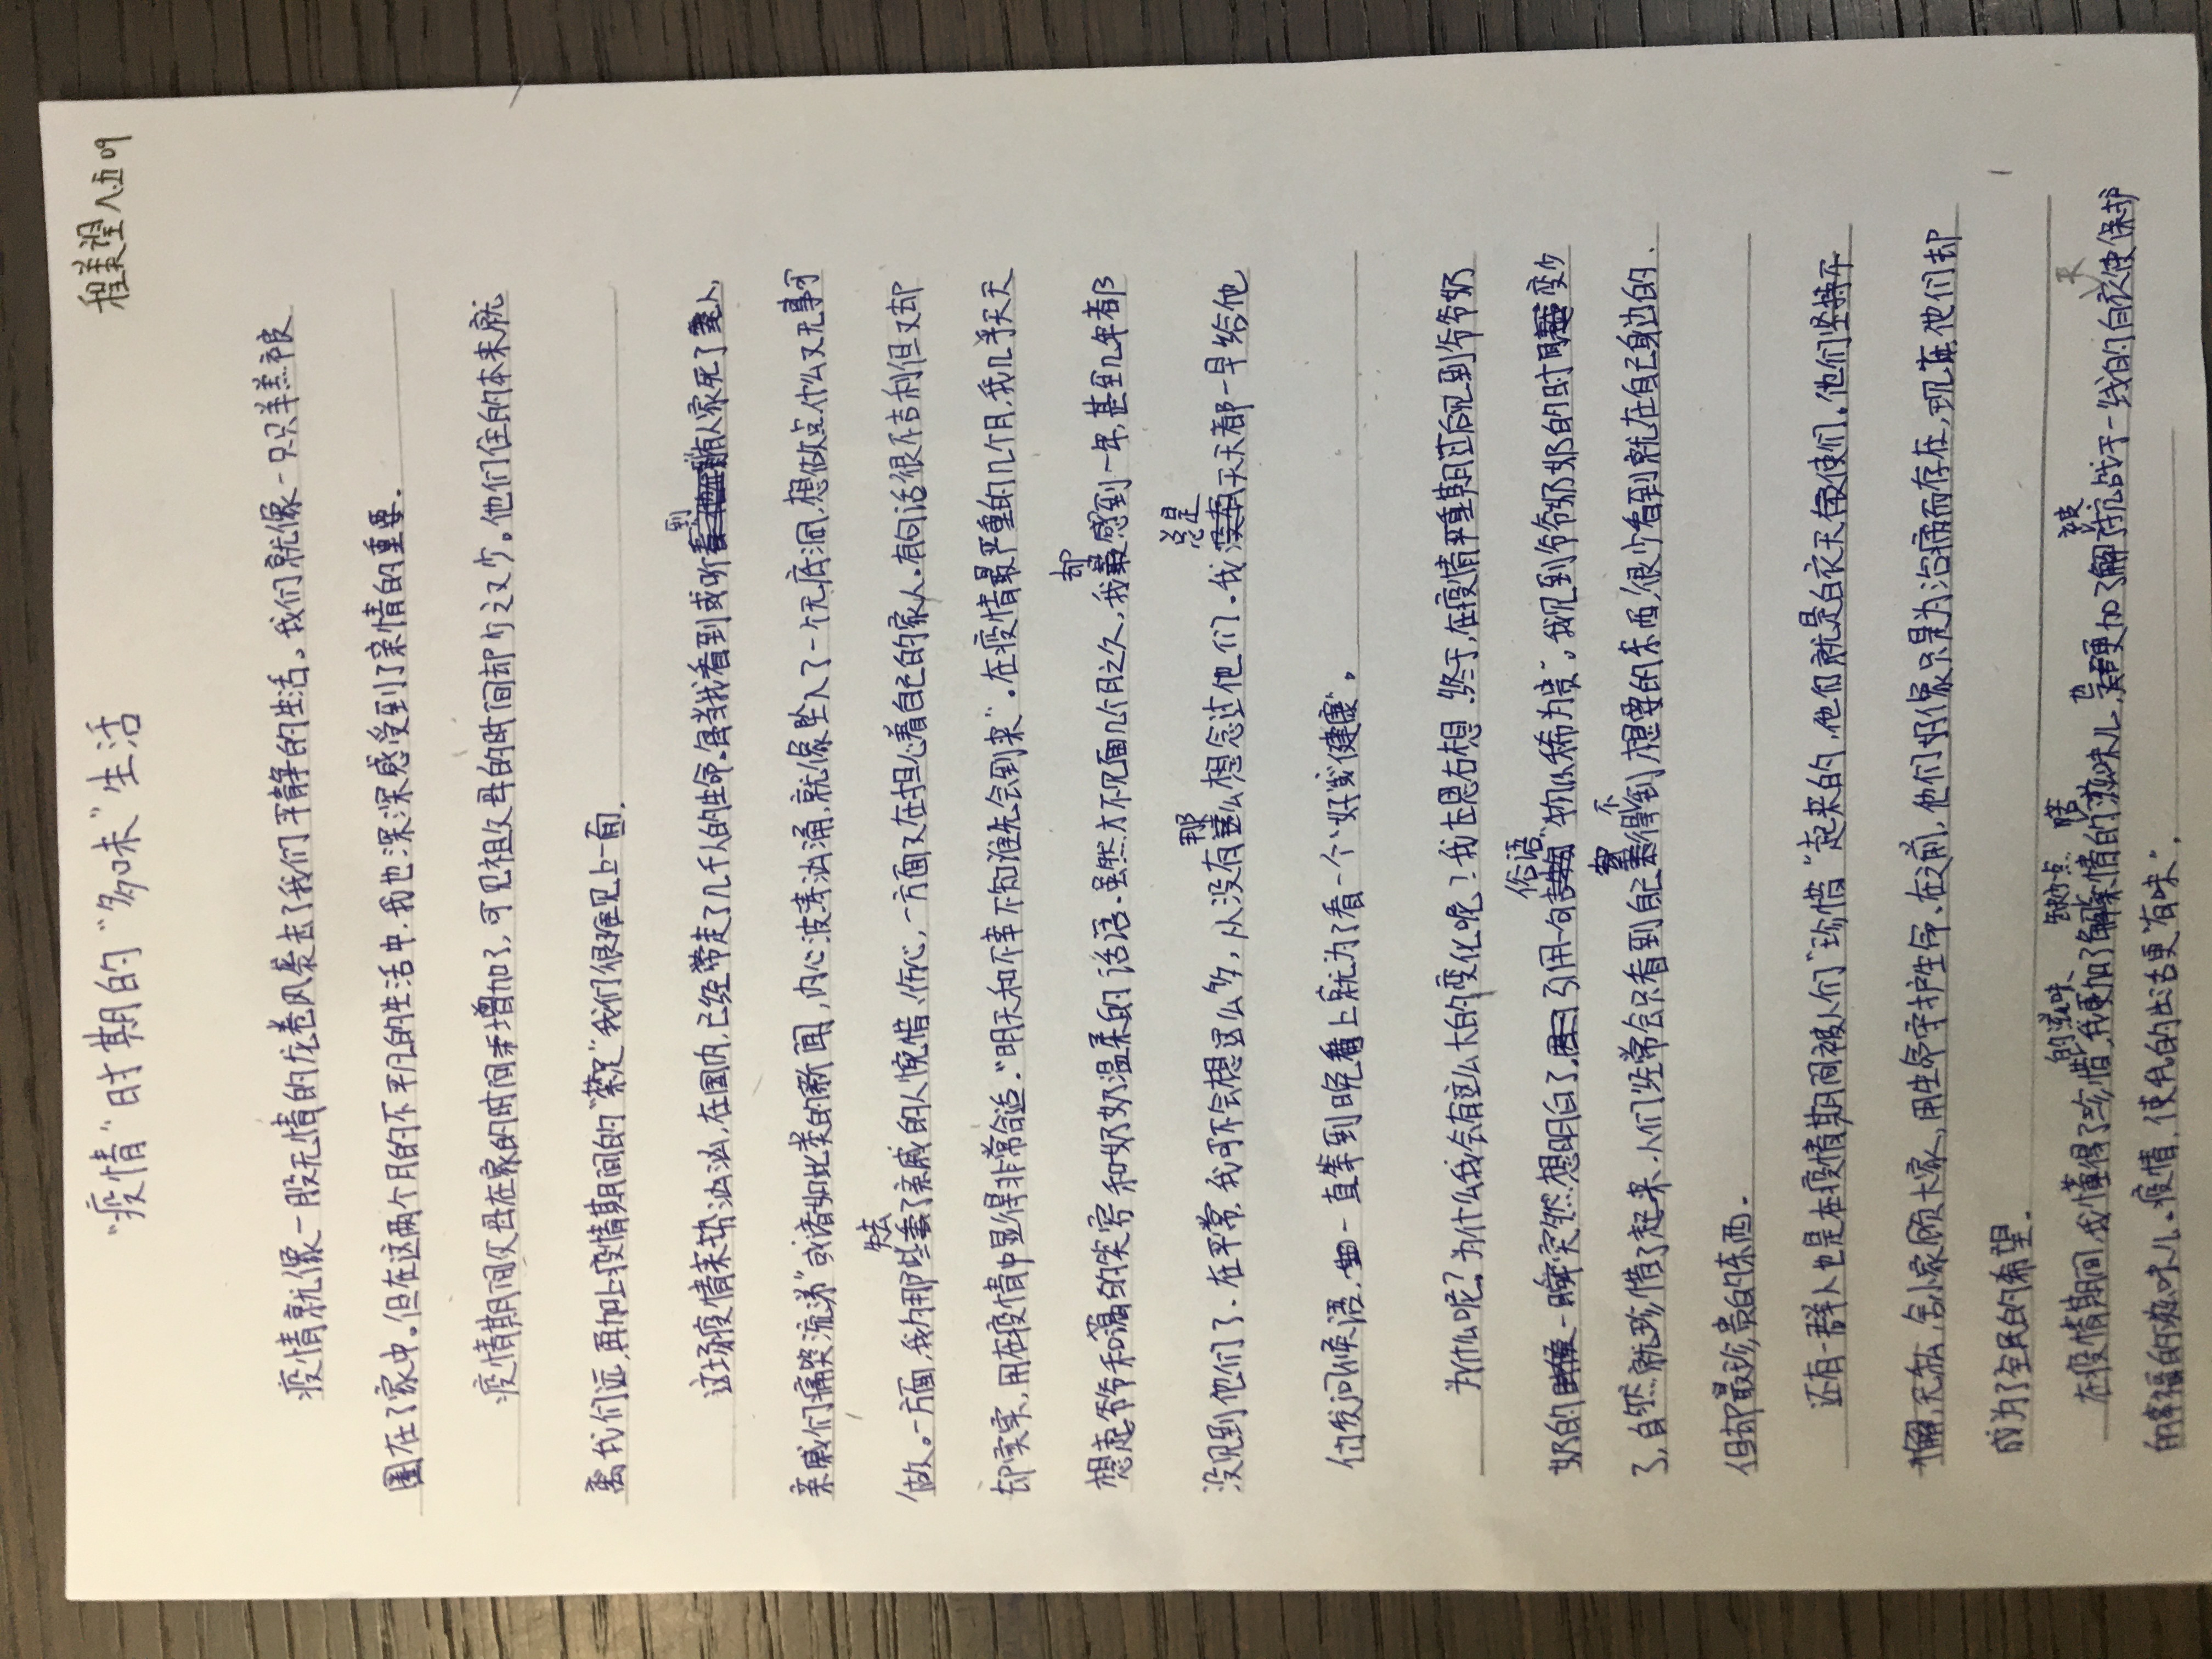 “疫情”时期的“多味”生活
程美瑆 八.五 09
疫情就像一股无情的龙卷风袭击了我们平静的生活。我们就像一只只羊羔被
圈在了家中。但在这两个月的不平凡的生活中，我也深深感受到了亲情的重要。
疫情期间父母在家的时间增加了，可见祖父母的时间却少之又少。他们住的本来就
离我们远，再加上疫情期间的“禁足”我们很难见上一面。
这场疫情来势汹汹，在国内，已经带走了几千人的生命。每当我看到或听到有人家死了人
亲戚们“痛哭流涕”或诸如此类的新闻，内心波涛汹涌，就像坠入了一个无底洞，想做点什么又无事可
做。一方面，我为那些失去了亲戚的人惋惜、伤心，一方面又在担心着自己的家人。有句话很不吉利但又却
却实实，用在疫情中显得非常合适：“明天和不幸不知谁先会到来”。在疫情最严重的几个月，我几乎天天
想起爷爷和蔼的笑容和奶奶温柔的话语。虽然才不见面几个月之久，我却感到一年，甚至几年都
没见到他们了。在平常，我可不会想这么多，从没有那么想念过他们。我总是天天都一早给他
们发问候语，一直等到晚上就为了看一个“好”或“健康”。
为什么呢？为什么我会有这么大的变化呢？！我左思右想，终于，在疫情严重期过后见到爷爷奶
奶的一瞬突然想明白了。引用一句俗语“物以稀为贵”，我见到爷爷奶奶的时间变少
了，自然就珍惜了起来。人们经常会只看到自己得不到想要的东西，很少看到就在自己身边的、
但却最珍贵的东西。
还有一群人也是在疫情期间被人们“珍惜”起来的，他们就是白衣天使们，他们坚持不
懈，无私，舍小家顾大家，用生命守护生命。在之前，他们好像只是为治病而存在，现在，他们却
成为了全民的希望。
在疫情期间，我懂得了珍惜的滋味，我更加了解亲情的滋味儿，也更加了解被抗战于一线的白衣天使保护
的幸福的滋味儿。疫情，使我的生活更“有味”。